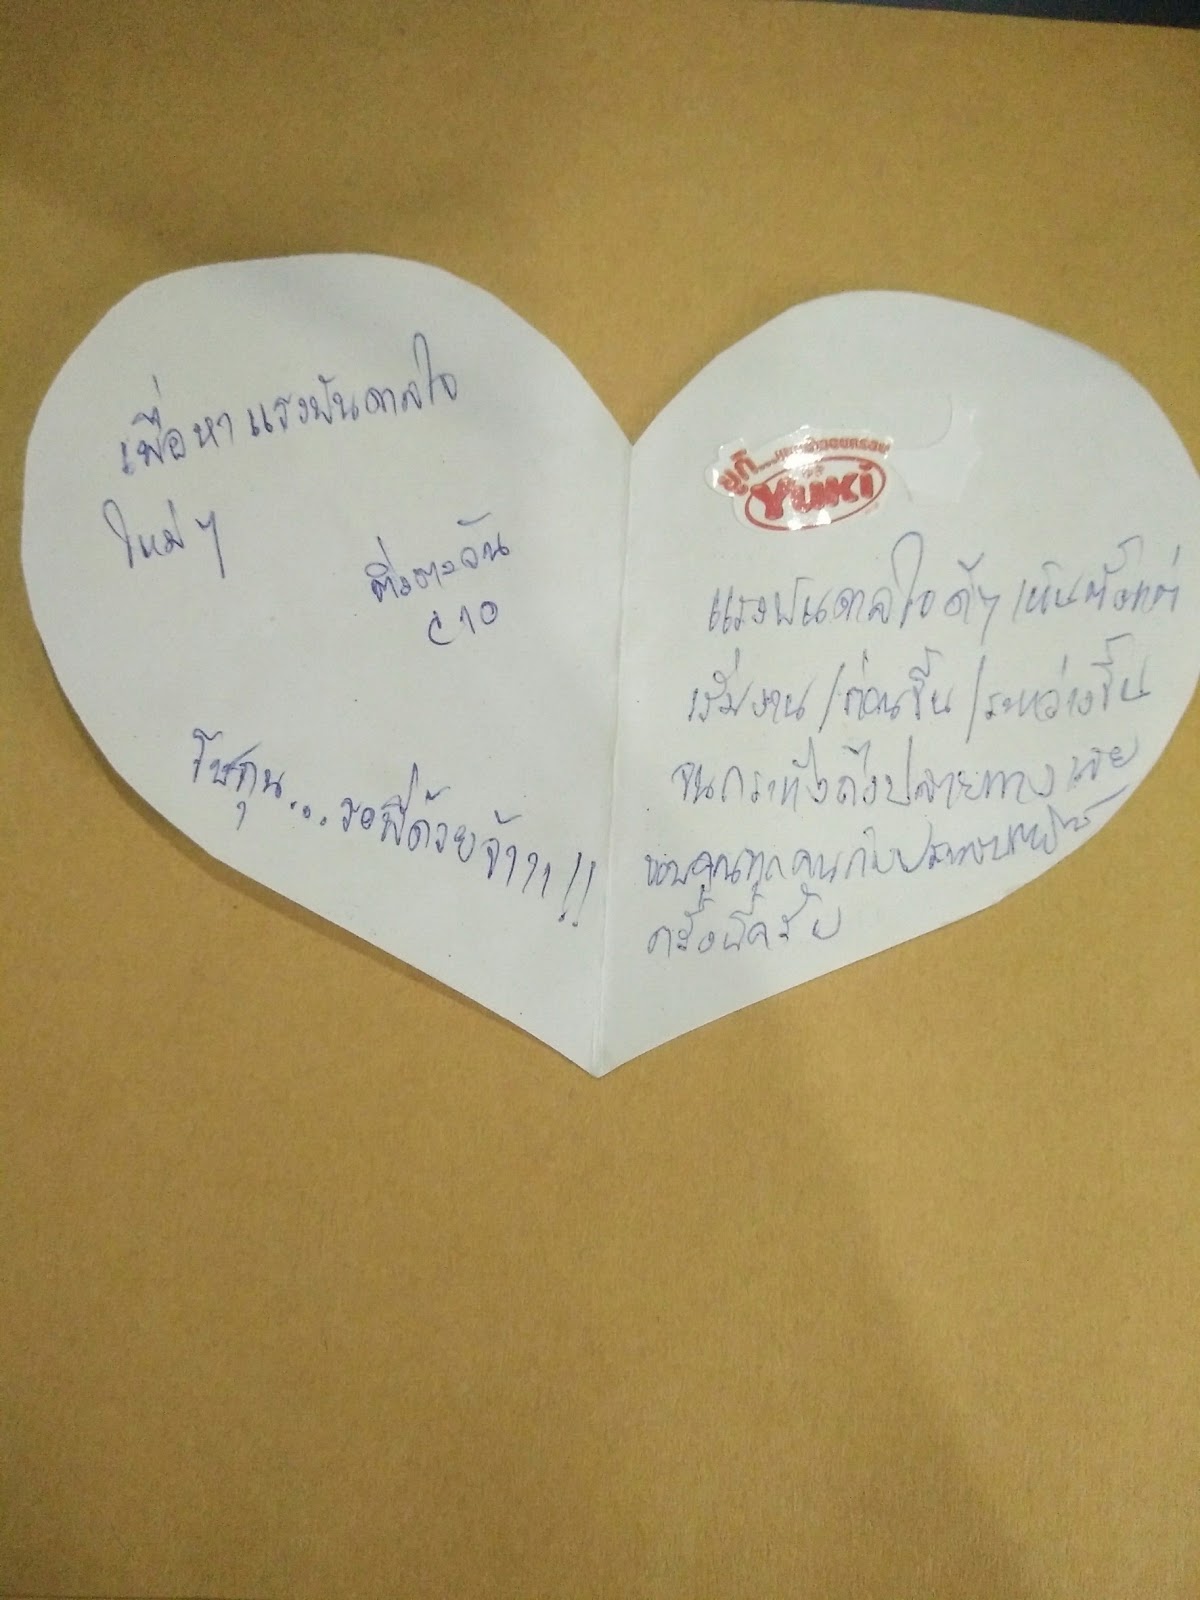 เพื่อหาแรงบันดาลใจ
ใหม่ๆ
ติ่งตะวัน
C10
โชกุน...รอพี่ด้วยจ้าาา!!
ยูกิ...
YUKI
แรงบันดาลใจดีๆ เห็นตั้งแต่
เริ่มงาน/ก่อนขึ้น/ระหว่างขึ้น
จนกระทั่งถึงปลายทางเลย
ขอบคุณทุกคนกับประสบการณ์
ครั้งนี้ครับ